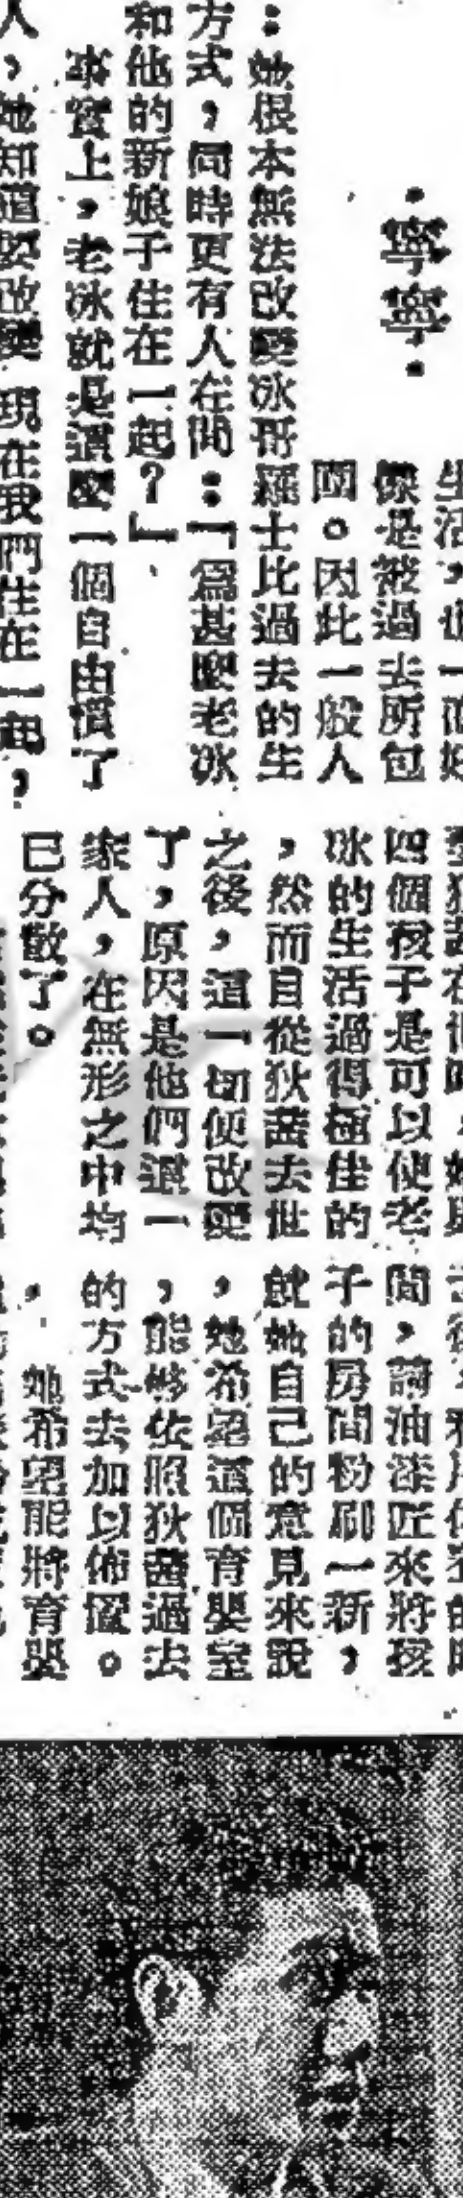 ·寧寧·
像是被過去所包
圍。因此一般人
：她根本無法改變冰哥羅士比過去的生
方式，同時更有人在問：「爲甚麼老冰
和他的新娘子住在一起？」
事實上，老冰就是這麼一個自由慣了
人，她知道要改變 現在我們住在一起，
四個孩子是可以使老
冰的生活過得極佳的
，然而自從狄茜去世
之後，這一切便改變
了，原因是他們這一
家人，在無形之中均
已分散了。
間，請油漆匠來將孩
子的房間粉刷一新，
就她自己的意見來說
，她希望這個育嬰室
，能够依照狄茜過去
的方式去加以佈置。
她希望能將育嬰